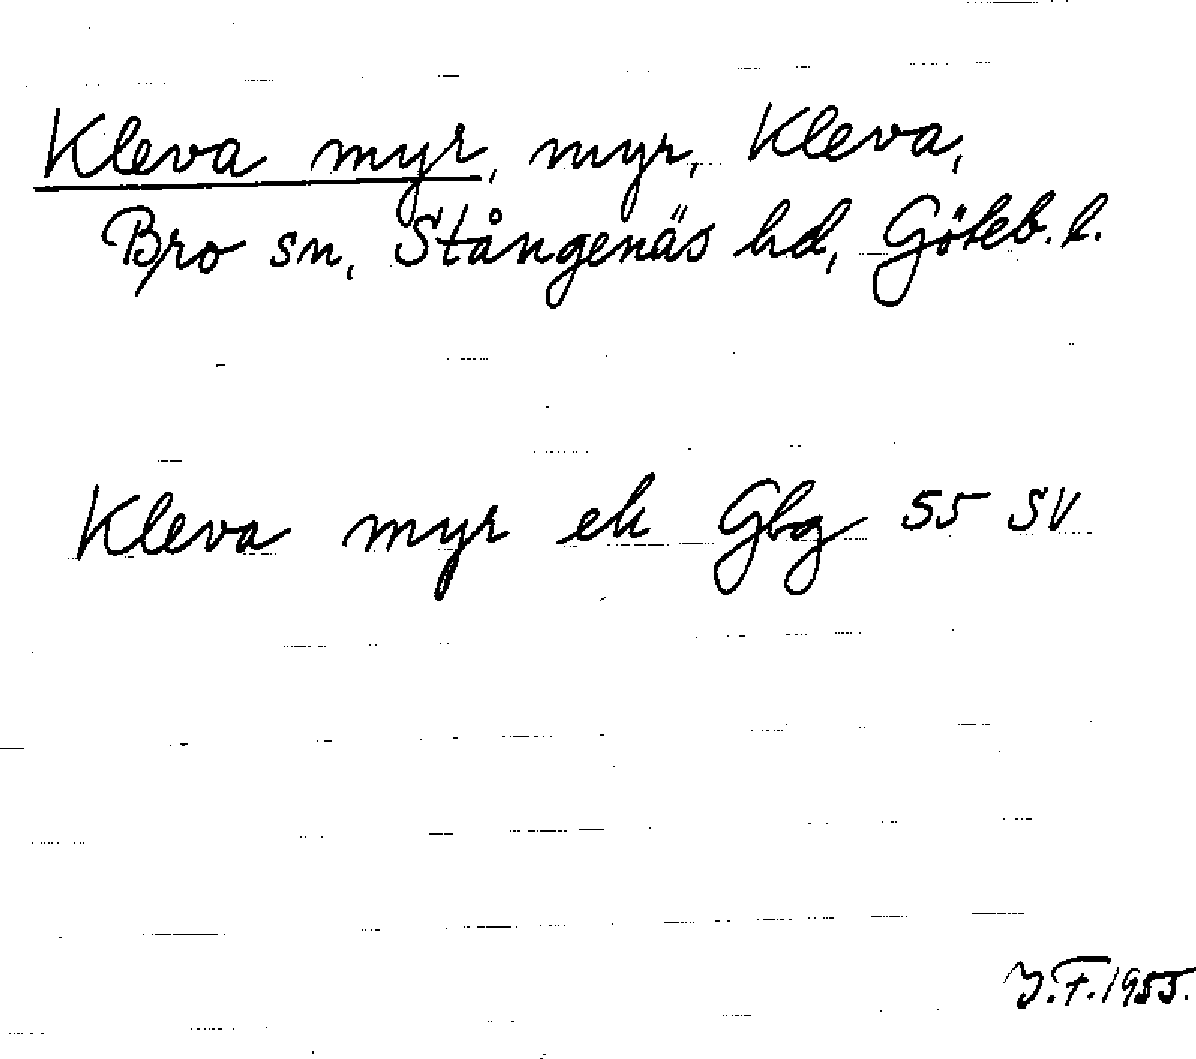 Kleva myr, myr, Kleva,
Bro sn, Stångenäs hd, Göteb. l.
Kleva myr ek Gbg 55 SV
J.F. 1955.